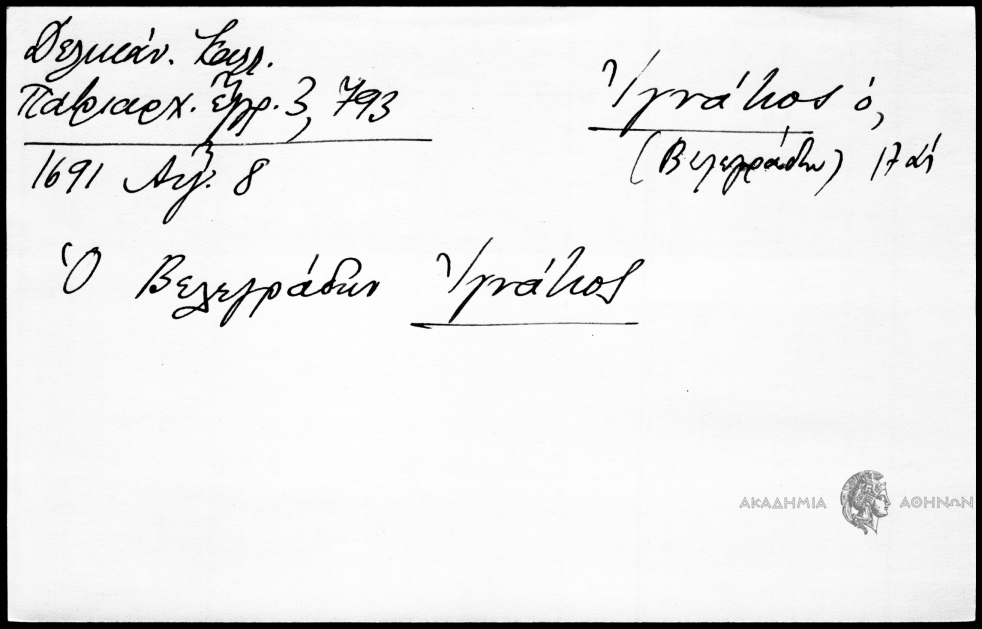 Δελικάν. Καλλ.
Πατριαρχ. ἔγγρ. 3, 793
1691 Αὐγ. 8
Ἰγνάτιος ὁ,
(Βελεγράδων) 17 αἰ
Ὁ Βελεγράδων Ἰγνάτιος
ΑΚΑΔΗΜΙΑ ΑΘΗΝΩΝ